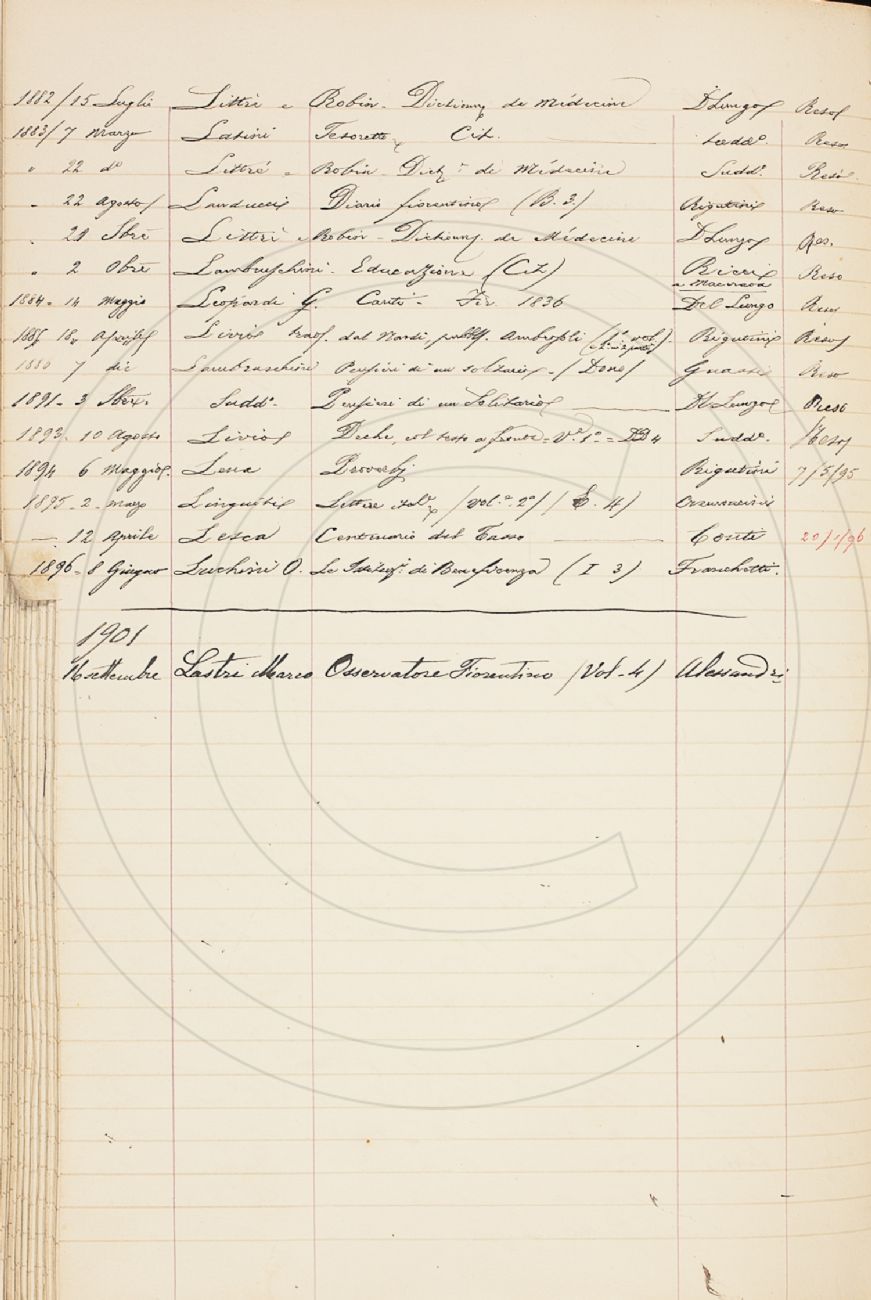 1882/15 Luglio Littré e Robin - Diction.y de Médecine D'Lungo Reso
1883/7 Marzo Latini Tesoretto Cit. Sudd.o Reso
" 22 d.o Littré e Robin - Dict.r de Médecine Sudd.o Reso
" 22 Agosto Landucci Diario fiorentino (B. 3.) Rigutini Reso
" 29 Sbre Littré e Robin - Dictionn. de Médecine D'Lungo Res.
" 2 Obre Lambruschini - Educazione (Cit) Ricci Reso
a Macerata
1884 - 14 Maggio Leopardi G. Canti - Fir. 1836 Del Lungo Reso
1885 18 Aprile Livio trad. dal Nardi, pubbl. Ambrosoli (1° vol.) Rigutini Reso
7 dic Lambruschini Pensieri di un solitario - (Dono) Guasti Reso
1891 - 3 Sbre. Sudd.o - Pensieri di un Solitario D'Lungo Reso
1893 - 10 Agosto Livio Deche, col testo a fronte = V.e 1.o = Sudd.o Reso
1894 6 Maggio. Lena Proverbj Rigutini 7/5/95
1895 - 2 - marzo Linguiti Lettere ital.e (Vol.e 2°) (E. 4)
" 12 Aprile Lesca Centenario del Tasso Conti 20/1/96
1896 - 8 Giugno Luchini O. Le Istituz.i di Beneficenza (I 3) Franchetti.
1901
16 settembre Lastri Marco Osservatore Fiorentino (Vol - 4) Alessandri